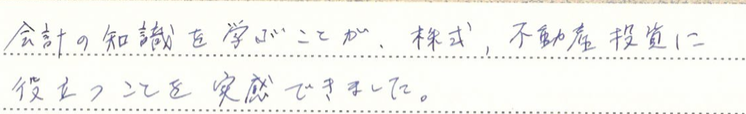 会計の知識を学ぶことが、株式, 不動産投資に
役立つことを実感できました。